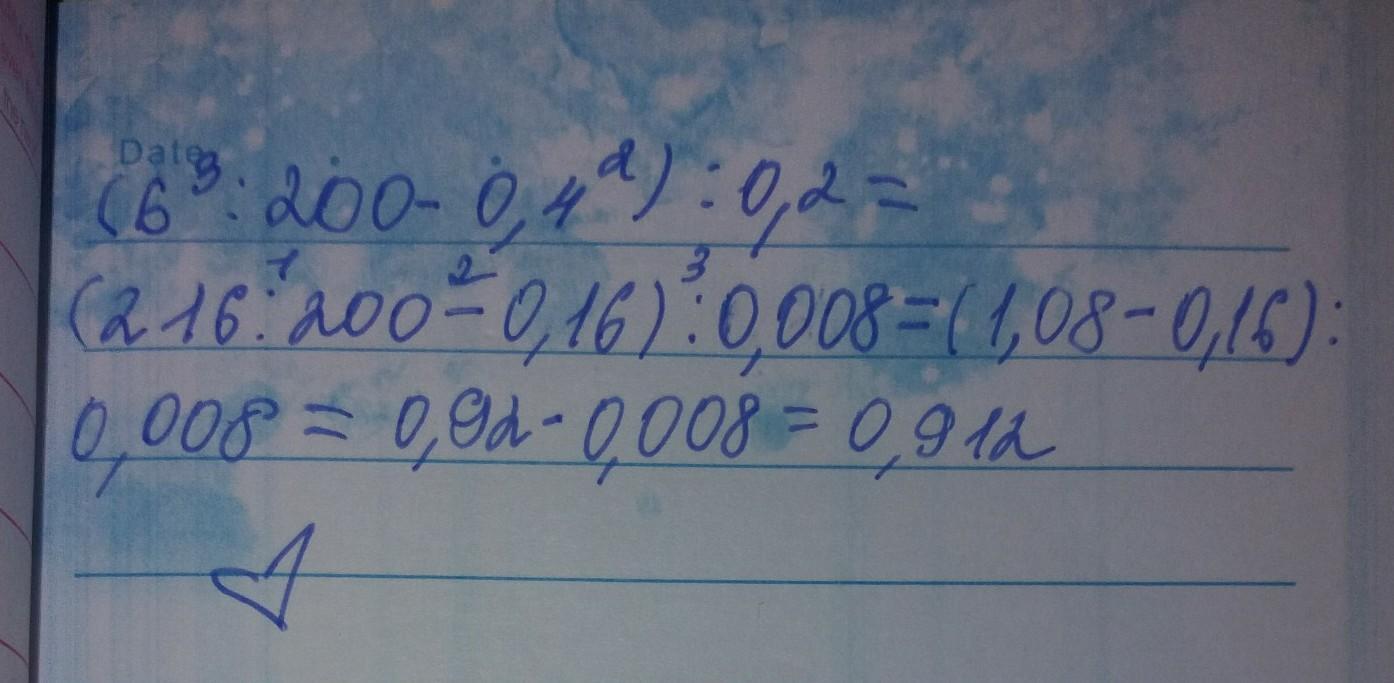 Date
(6³ : 200 - 0,4²) : 0,2 =
1 2 3
(216 : 200 - 0,16) : 0,008 = (1,08 - 0,16) :
0,008 = 0,92 - 0,008 = 0,912